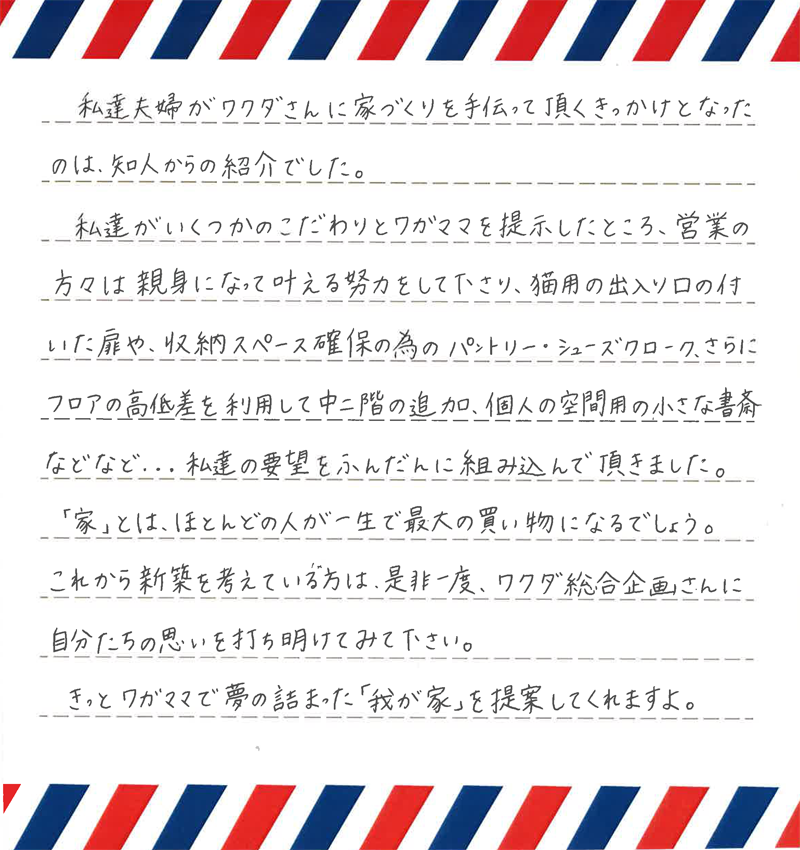 私達夫婦がワクダさんに家づくりを手伝って頂くきっかけとなった
のは、知人からの紹介でした。
私達がいくつかのこだわりとワガママを提示したところ、営業の
方々は親身になって叶える努力をして下さり、猫用の出入り口の付
いた扉や、収納スペース確保の為のパントリー・シューズクローク、さらに
フロアの高低差を利用して中二階の追加、個人の空間用の小さな書斎
などなど...私達の要望をふんだんに組み込んで頂きました。
「家」とは、ほとんどの人が一生で最大の買い物になるでしょう。
これから新築を考えている方は、是非一度、ワクダ総合企画さんに
自分たちの思いを打ち明けてみて下さい。
きっとワガママで夢の詰まった「我が家」を提案してくれますよ。